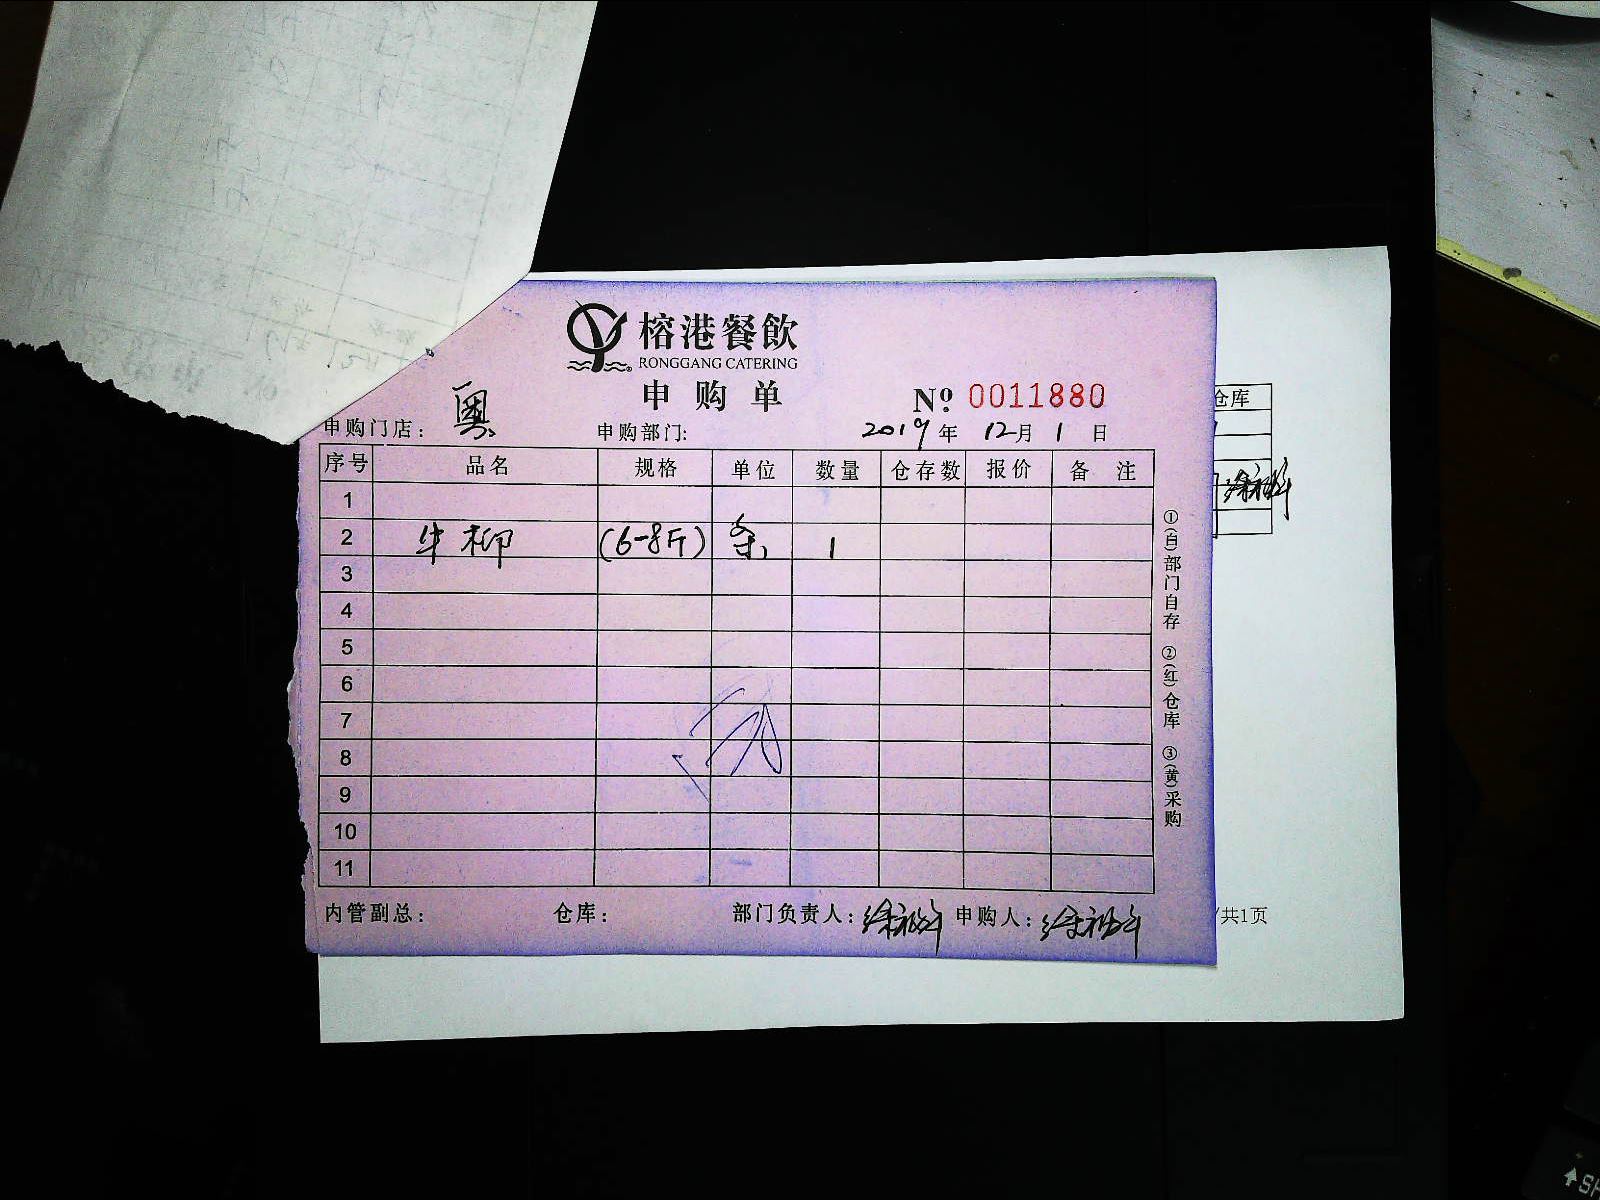 榕港餐飲
RONGGANG CATERING
申购单
Nº 0011880
申购门店： 粤 申购部门： 2019年 12月 1日
序号 品名 规格 单位 数量 仓存数 报价 备 注
1
2 牛柳 (6-8斤) 条 1
3
4
5
6
7
8
9
10
11
内管副总： 仓库： 部门负责人： 申购人：
①(白)部门自存 ②(红)仓库 ③(黄)采购
仓库
/共1页